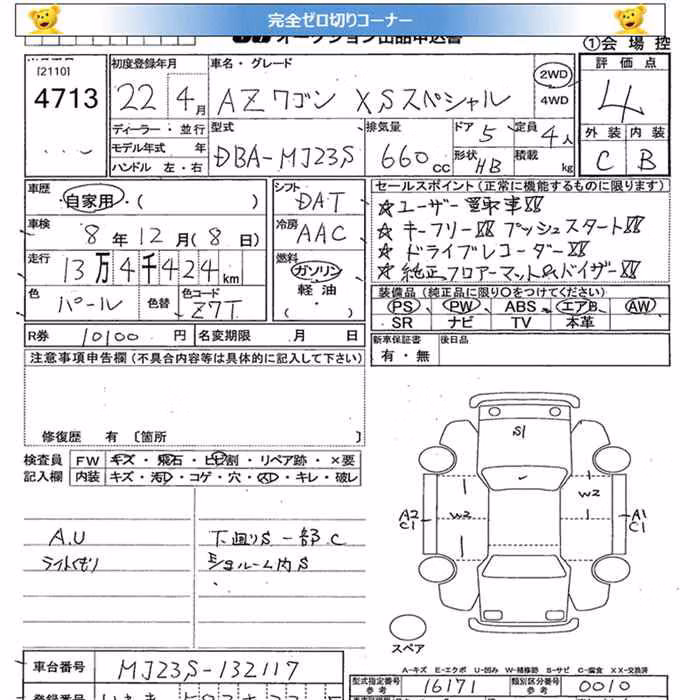 完全ゼロ切りコーナー
オークション出品申込書
①会場控
[2110]
4713
初度登録年月
22年 4月
車名・グレード
AZワゴン XSスペシャル
2WD
4WD
評価点
4
外装 内装
C B
ディーラー・並行
モデル年式 年
ハンドル 左・右
型式
DBA-MJ23S
排気量
660cc
ドア 5
形状 HB
定員 4人
積載 kg
車歴
自家用・( )
車検
8年12月(8日)
走行
13万4千424km
色
パール
色替
色コード
Z7T
シフト
DAT
冷房
AAC
燃料
ガソリン
軽油・
( )
セールスポイント(正常に機能するものに限ります)
☆ユーザー買取車!!
☆キーフリー!! プッシュスタート!!
☆ドライブレコーダー!!
☆純正フロアーマット&バイザー!!
装備品(純正品に限り○をつけてください)
PS PW ABS エアB AW
SR ナビ TV 本革
R券 10100円 名変期限 月 日
新車保証書
有・無
後日品
注意事項申告欄(不具合内容等は具体的に記入して下さい)
修復歴 有 〔箇所 〕
検査員
記入欄
FW キズ・飛石・ヒビ割・リペア跡・×要
内装 キズ・汚れ・コゲ・穴・凹・キレ・破レ
A.U
ライトくもり
下廻りS一部C
ショルーム内S
S1
W2
W2
A2
C1
A1
C1
スペア
A-キズ E-エクボ U-凹み W-補修跡 S-サビ C-腐食 XX-交換済
車台番号
MJ23S-132117
型式指定番号
参考
16171
類別区分番号
参考
0010
登録番号